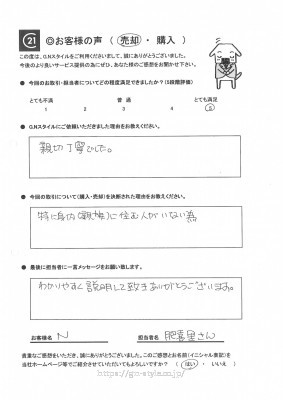 21 ◎お客様の声（ 売却 ・ 購入 ）
この度は、G.Nスタイルをご利用くださいまして、誠にありがとうございました。
今後のより良いサービス提供の為にぜひ、あなた様のご感想をお聞かせ下さい。
● 今回のお取引・担当者についてどの程度満足できましたか？（5段階評価）
とても不満 普通 とても満足
1 2 3 4 5
● G.Nスタイルにご依頼いただきました理由をお教えください。
親切丁寧でした。
● 今回の取引について（購入・売却）を決断された理由をお教えください。
特に身内（親族）に住む人がいない為
● 最後に担当者に一言メッセージをお願い致します。
わかりやすく説明して頂きありがとうございます。
お客様名 N 担当者名 肥喜里さん
貴重なご感想をいただき、誠にありがとうございました。このご感想とお名前（イニシャル表記）を
当社ホームページ等でご紹介させていただいてもよろしいですか？ （ はい ・ いいえ ）